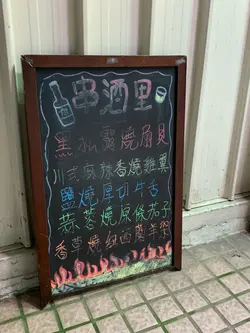 串酒里
黑松露燒扇貝
川式麻辣香燒雞翼
鹽燒厚切牛舌
蒜蓉燒原條茄子
香草燒紐西蘭羊架